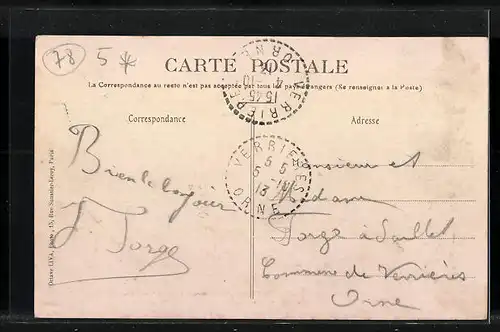 78 5 *
CARTE POSTALE
La Correspondance au recto n'est pas acceptée par tous les pays étrangers (Se renseigner à la Poste)
Correspondance
Adresse
VERRIERES
ORNE
15 45
4 -10
VERRIERES
5 5
5 -10
13
ORNE
Bien le bonjour
F. Forge
Monsieur et
Madame
Forge à
Commune de Verrières
Orne